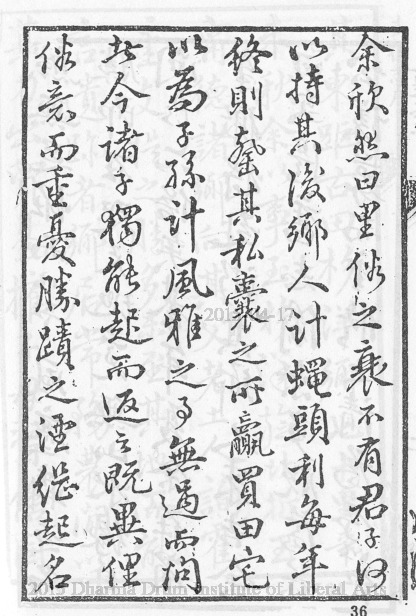 余欣然曰里俗之衰不有君子何
以持其後鄉人計蠅頭利每年
終則罄其私囊之所贏買田宅
以為子孫計風雅之事無過而問
者今諸子獨能起而返之既異俚
俗意而重憂勝蹟之湮偬起名
2013-04-17
2013 Dharma Drum Institute of Liberal Arts
36